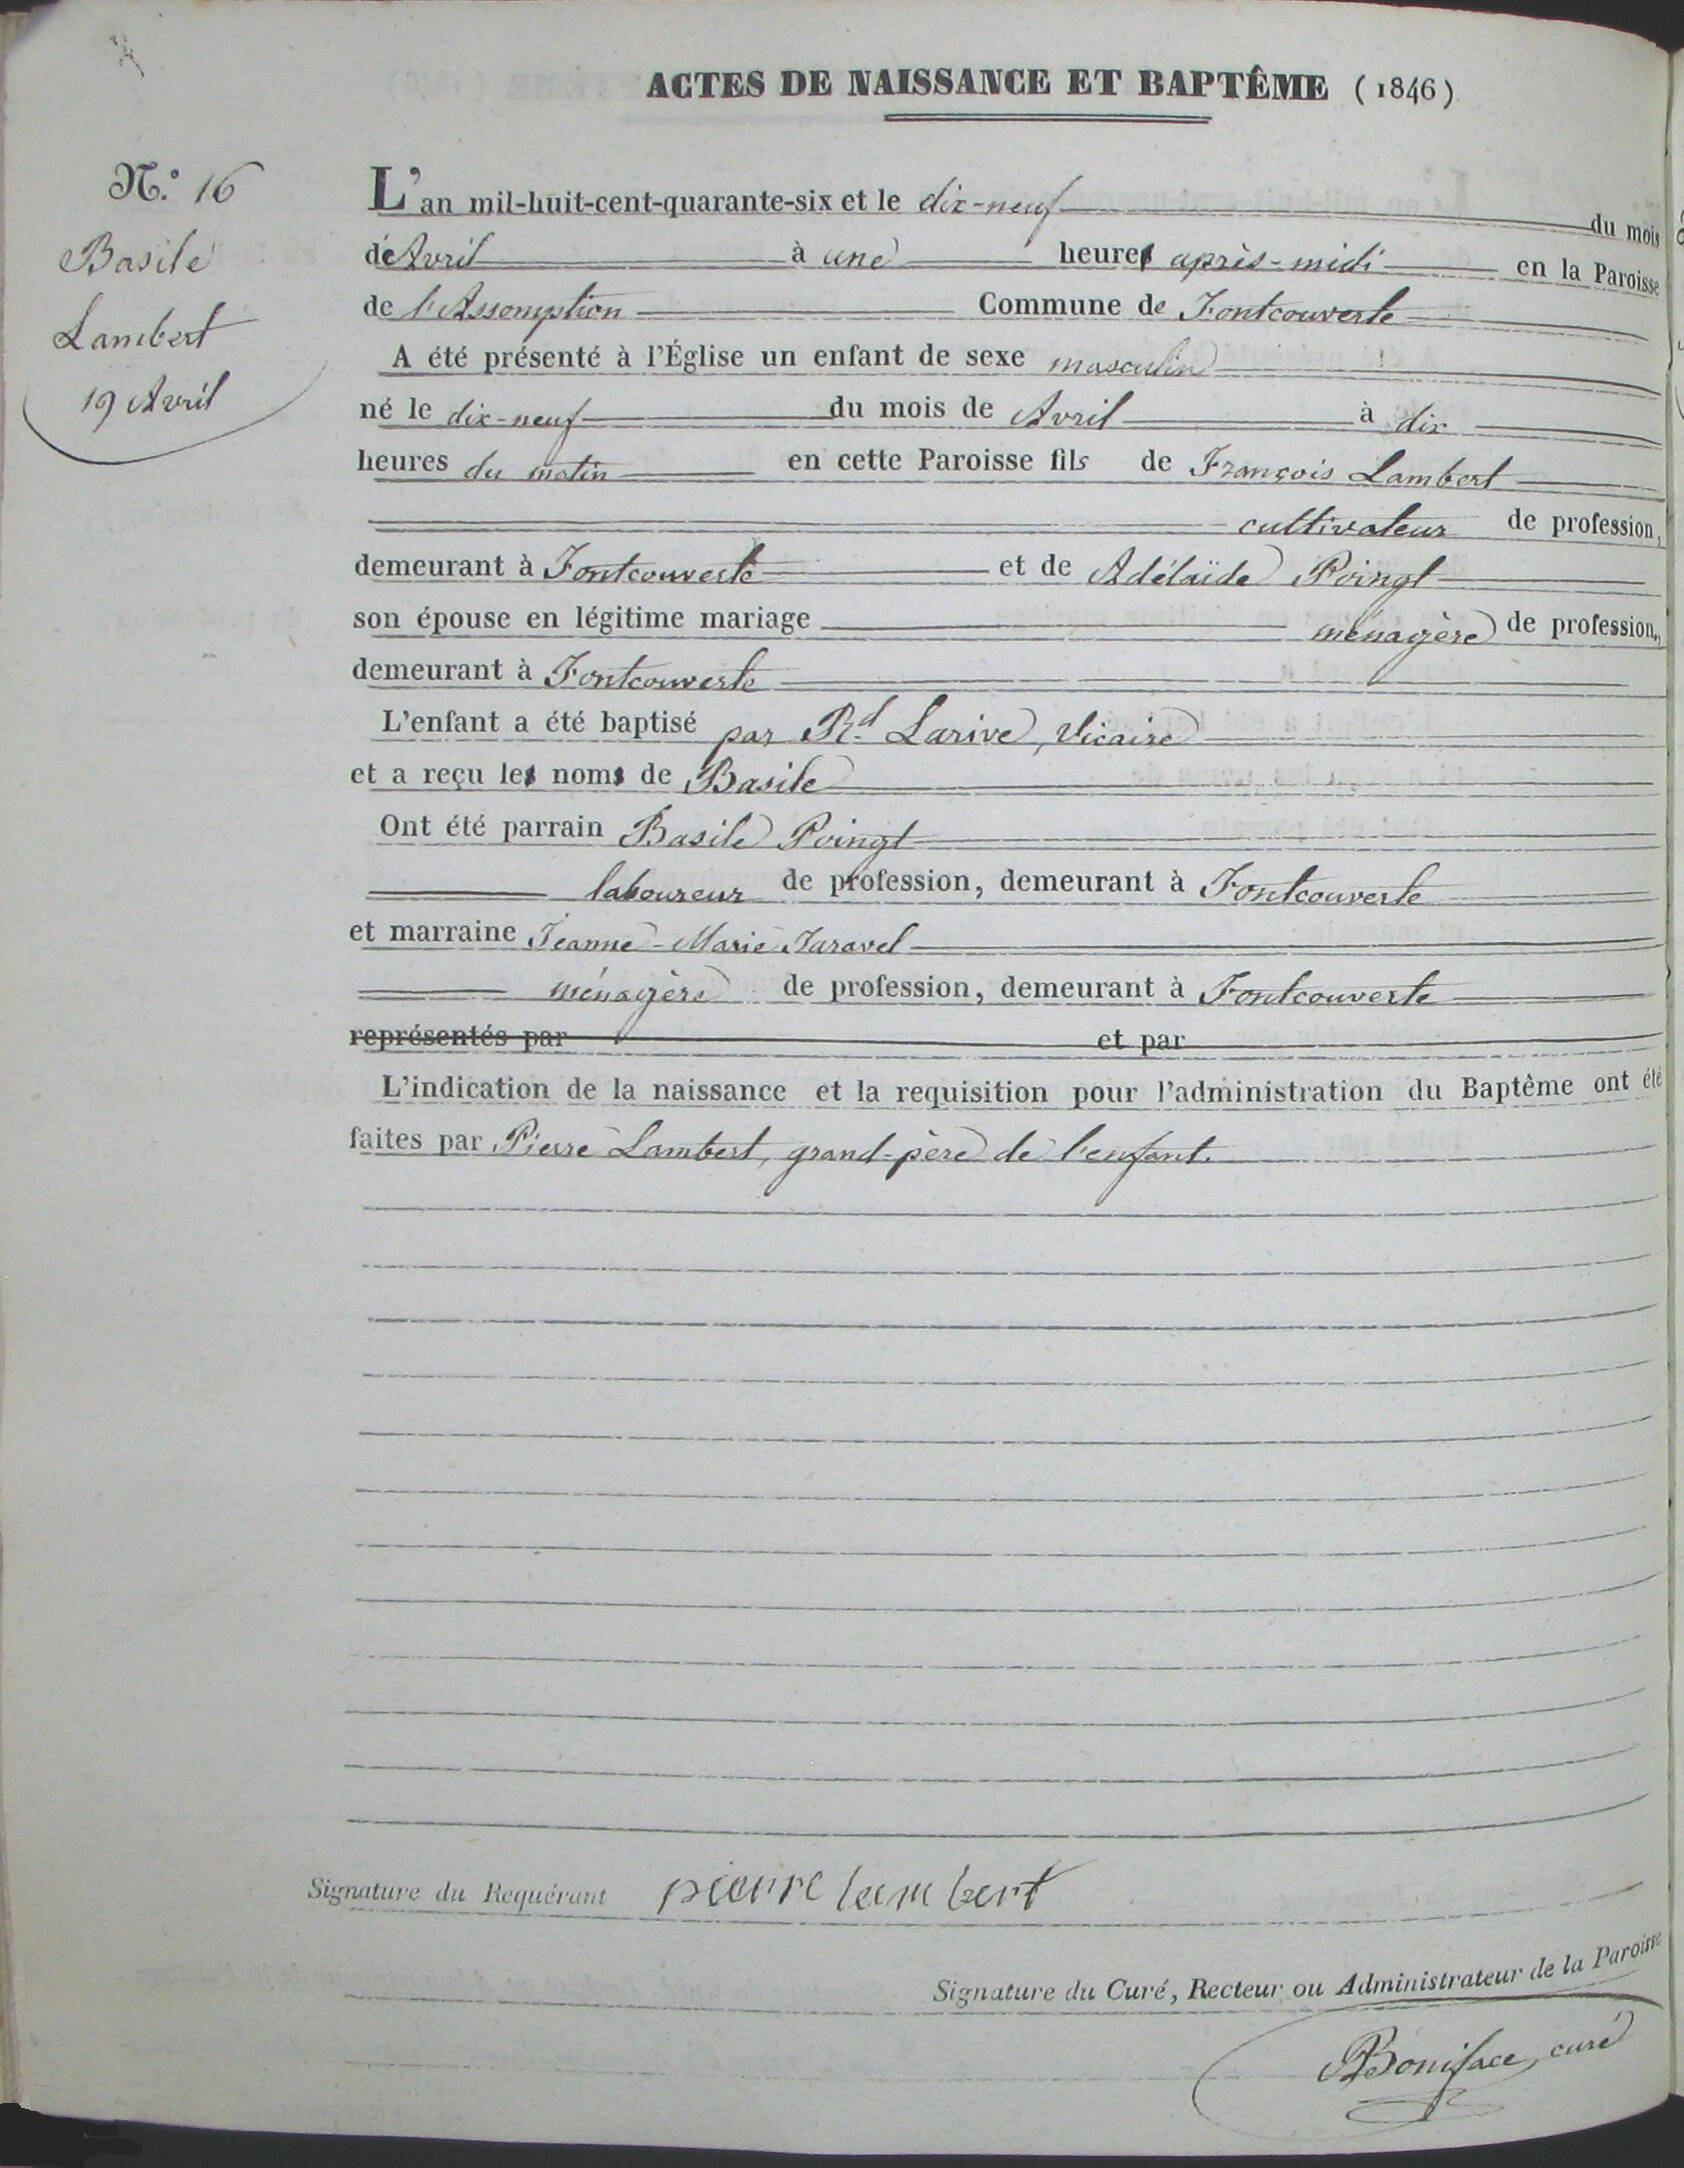 ACTES DE NAISSANCE ET BAPTÊME (1846)
N.° 16
Basile
Lambert
19 Avril
L'an mil-huit-cent-quarante-six et le dix-neuf du mois
de Avril à une heures après-midi en la Paroisse
de l'Assomption Commune de Fontcouverte
A été présenté à l'Église un enfant de sexe masculin
né le dix-neuf du mois de Avril à dix
heures du matin en cette Paroisse fils de François Lambert
cultivateur de profession,
demeurant à Fontcouverte et de Adélaïde Poingt
son épouse en légitime mariage ménagère de profession,
demeurant à Fontcouverte
L'enfant a été baptisé par Rd Larive, Vicaire
et a reçu les noms de Basile
Ont été parrain Basile Poingt
laboureur de profession, demeurant à Fontcouverte
et marraine Jeanne-Marie Jaravel
ménagère de profession, demeurant à Fontcouverte
représentés par et par
L'indication de la naissance et la requisition pour l'administration du Baptême ont été
faites par Pierre Lambert, grand-père de l'enfant.
Signature du Requérant pierre lambert
Signature du Curé, Recteur ou Administrateur de la Paroisse
Boniface, curé